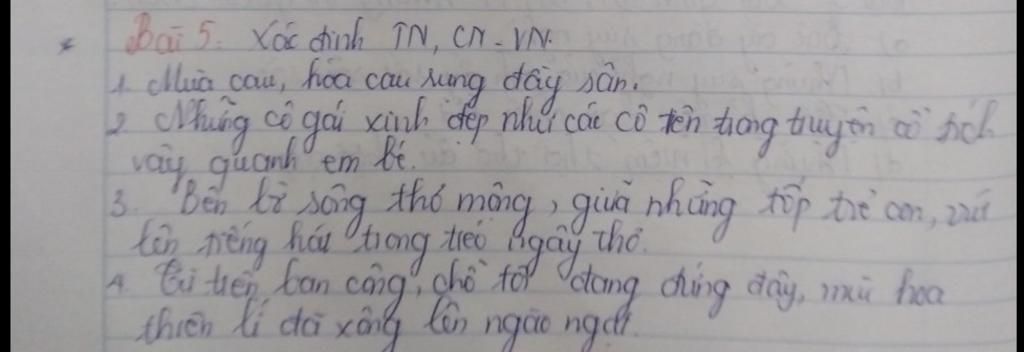 * Bài 5. Xác định TN, CN - VN.
1. Mùa cau, hoa cau rụng đầy sân.
2. Những cô gái xinh đẹp như các cô tên trong truyện cổ tích
vây quanh em bé.
3. Bên bờ sông thơ mộng, giữa những tốp trẻ con, vút
lên tiếng hát trong trẻo ngây thơ.
4. Từ trên ban công, chỗ tôi đang đứng đây, mùi hoa
thiên lí đã xông lên ngào ngạt.